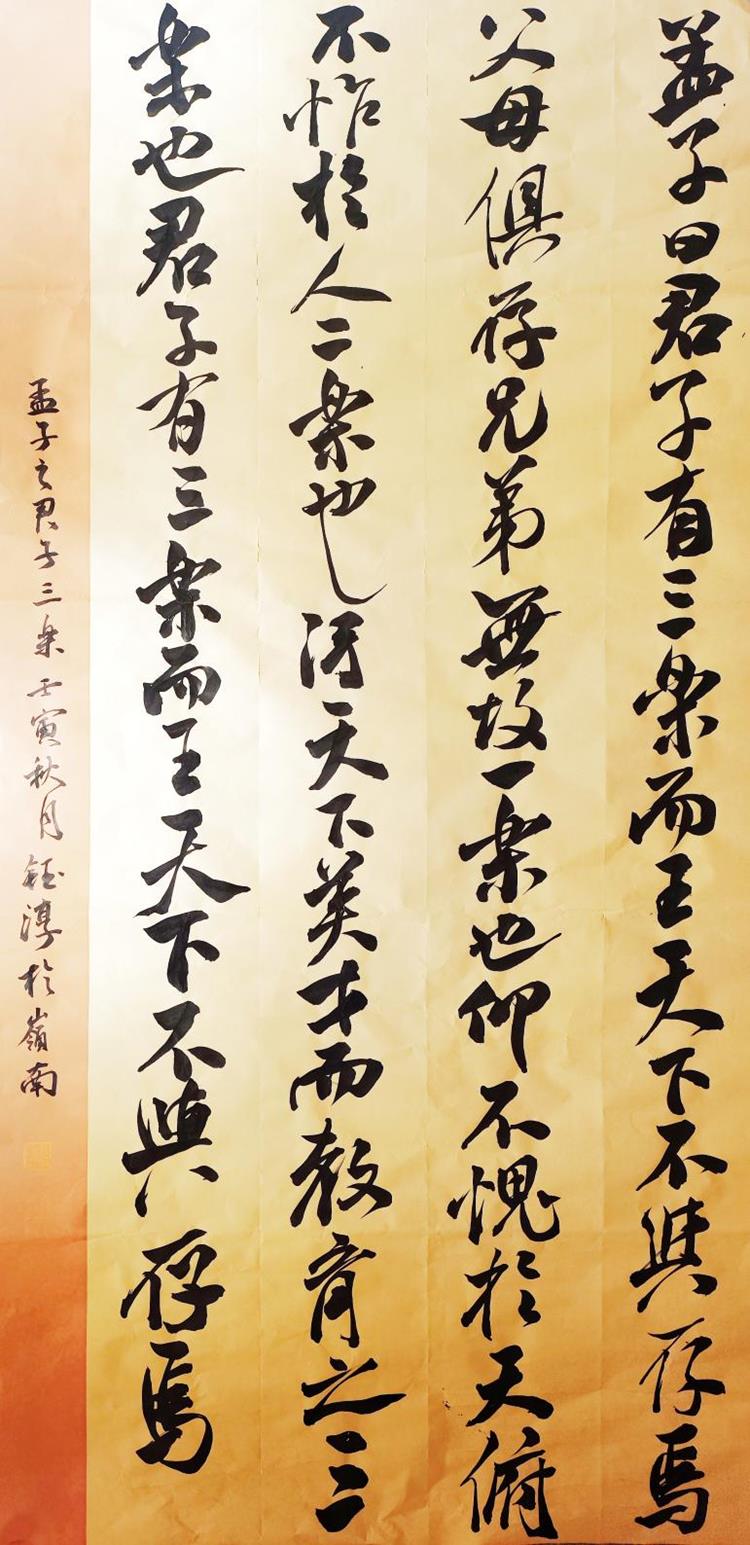 孟子曰君子有三樂而王天下不與存焉
父母俱存兄弟無故一樂也仰不愧於天俯
不怍於人二樂也得天下英才而教育之三
樂也君子有三樂而王天下不與存焉
孟子之君子三樂 壬寅秋月鈺淳於嶺南